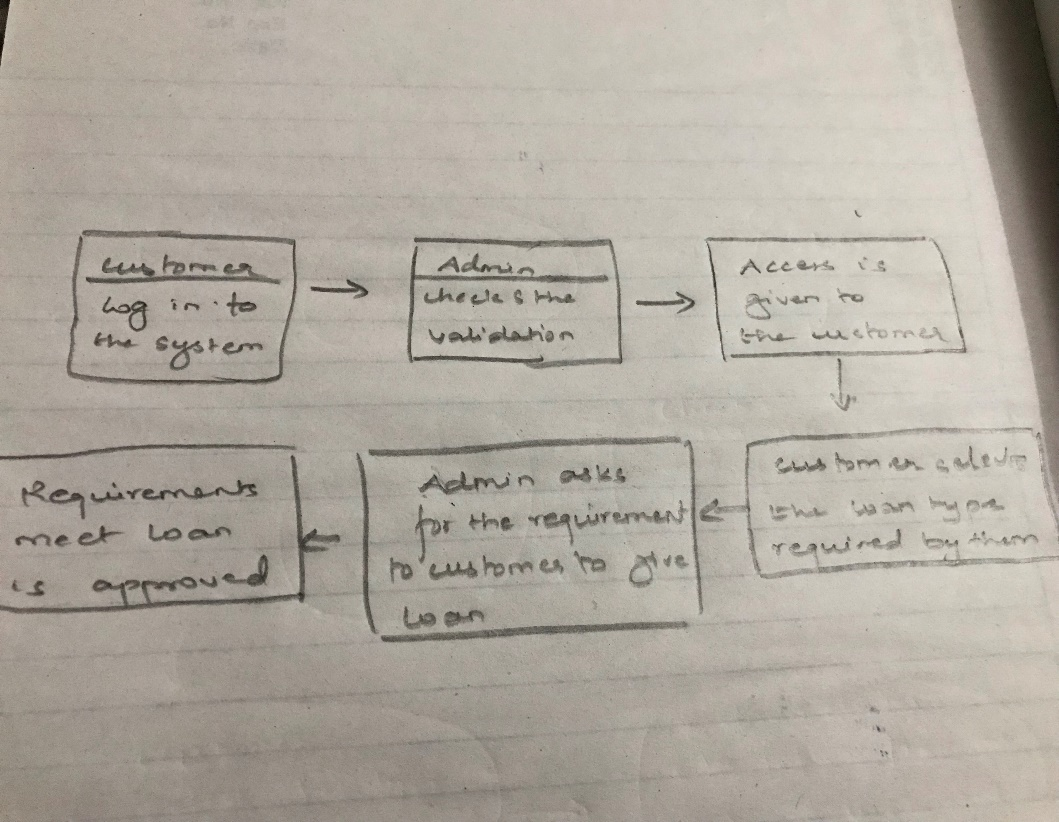 customer
Log in to
the system
Admin
checks the
validation
Access is
given to
the customer
customer selects
the loan type
required by them
Admin asks
for the requirement
to customer to give
Loan
Requirements
meet Loan
is approved